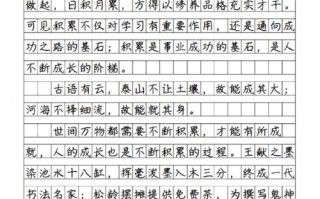 做起，日积月累，方得以修养品格充实才干。
可见积累不仅对学习有重要作用，还是通向成
功之路的基石；积累是事业成功的基石，是人
不断成长的阶梯。
古语有云，泰山不让土壤，故能成其大；
河海不择细流，故能就其身。
世间万物都需要不断积累，才能有所成
就，人的成长也是不断积累的过程。王献之墨
染池水十八缸，挥毫泼墨入木三分，终成一代
书法名家；松龄摆摊提供免费茶，为撰写鬼神